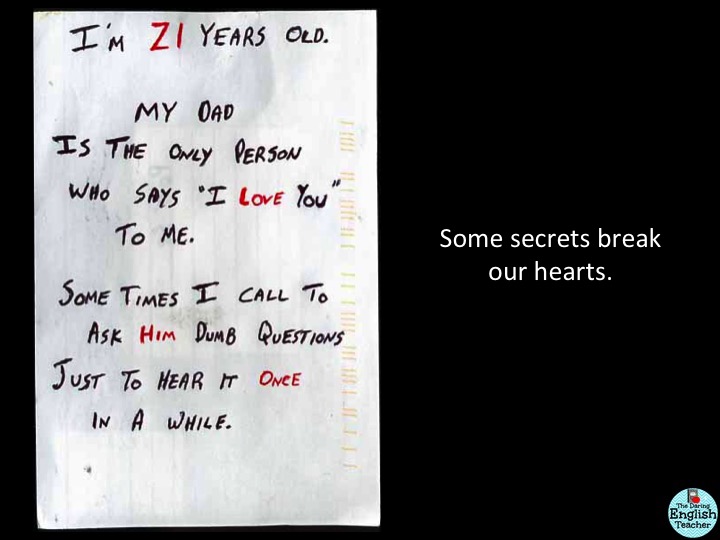 I'm 21 YEARS OLD.
MY DAD
IS THE ONLY PERSON
WHO SAYS "I LOVE YOU"
TO ME.
SOME TIMES I CALL TO
ASK HIM DUMB QUESTIONS
JUST TO HEAR IT ONCE
IN A WHILE.
Some secrets break
our hearts.
The Daring
English
Teacher